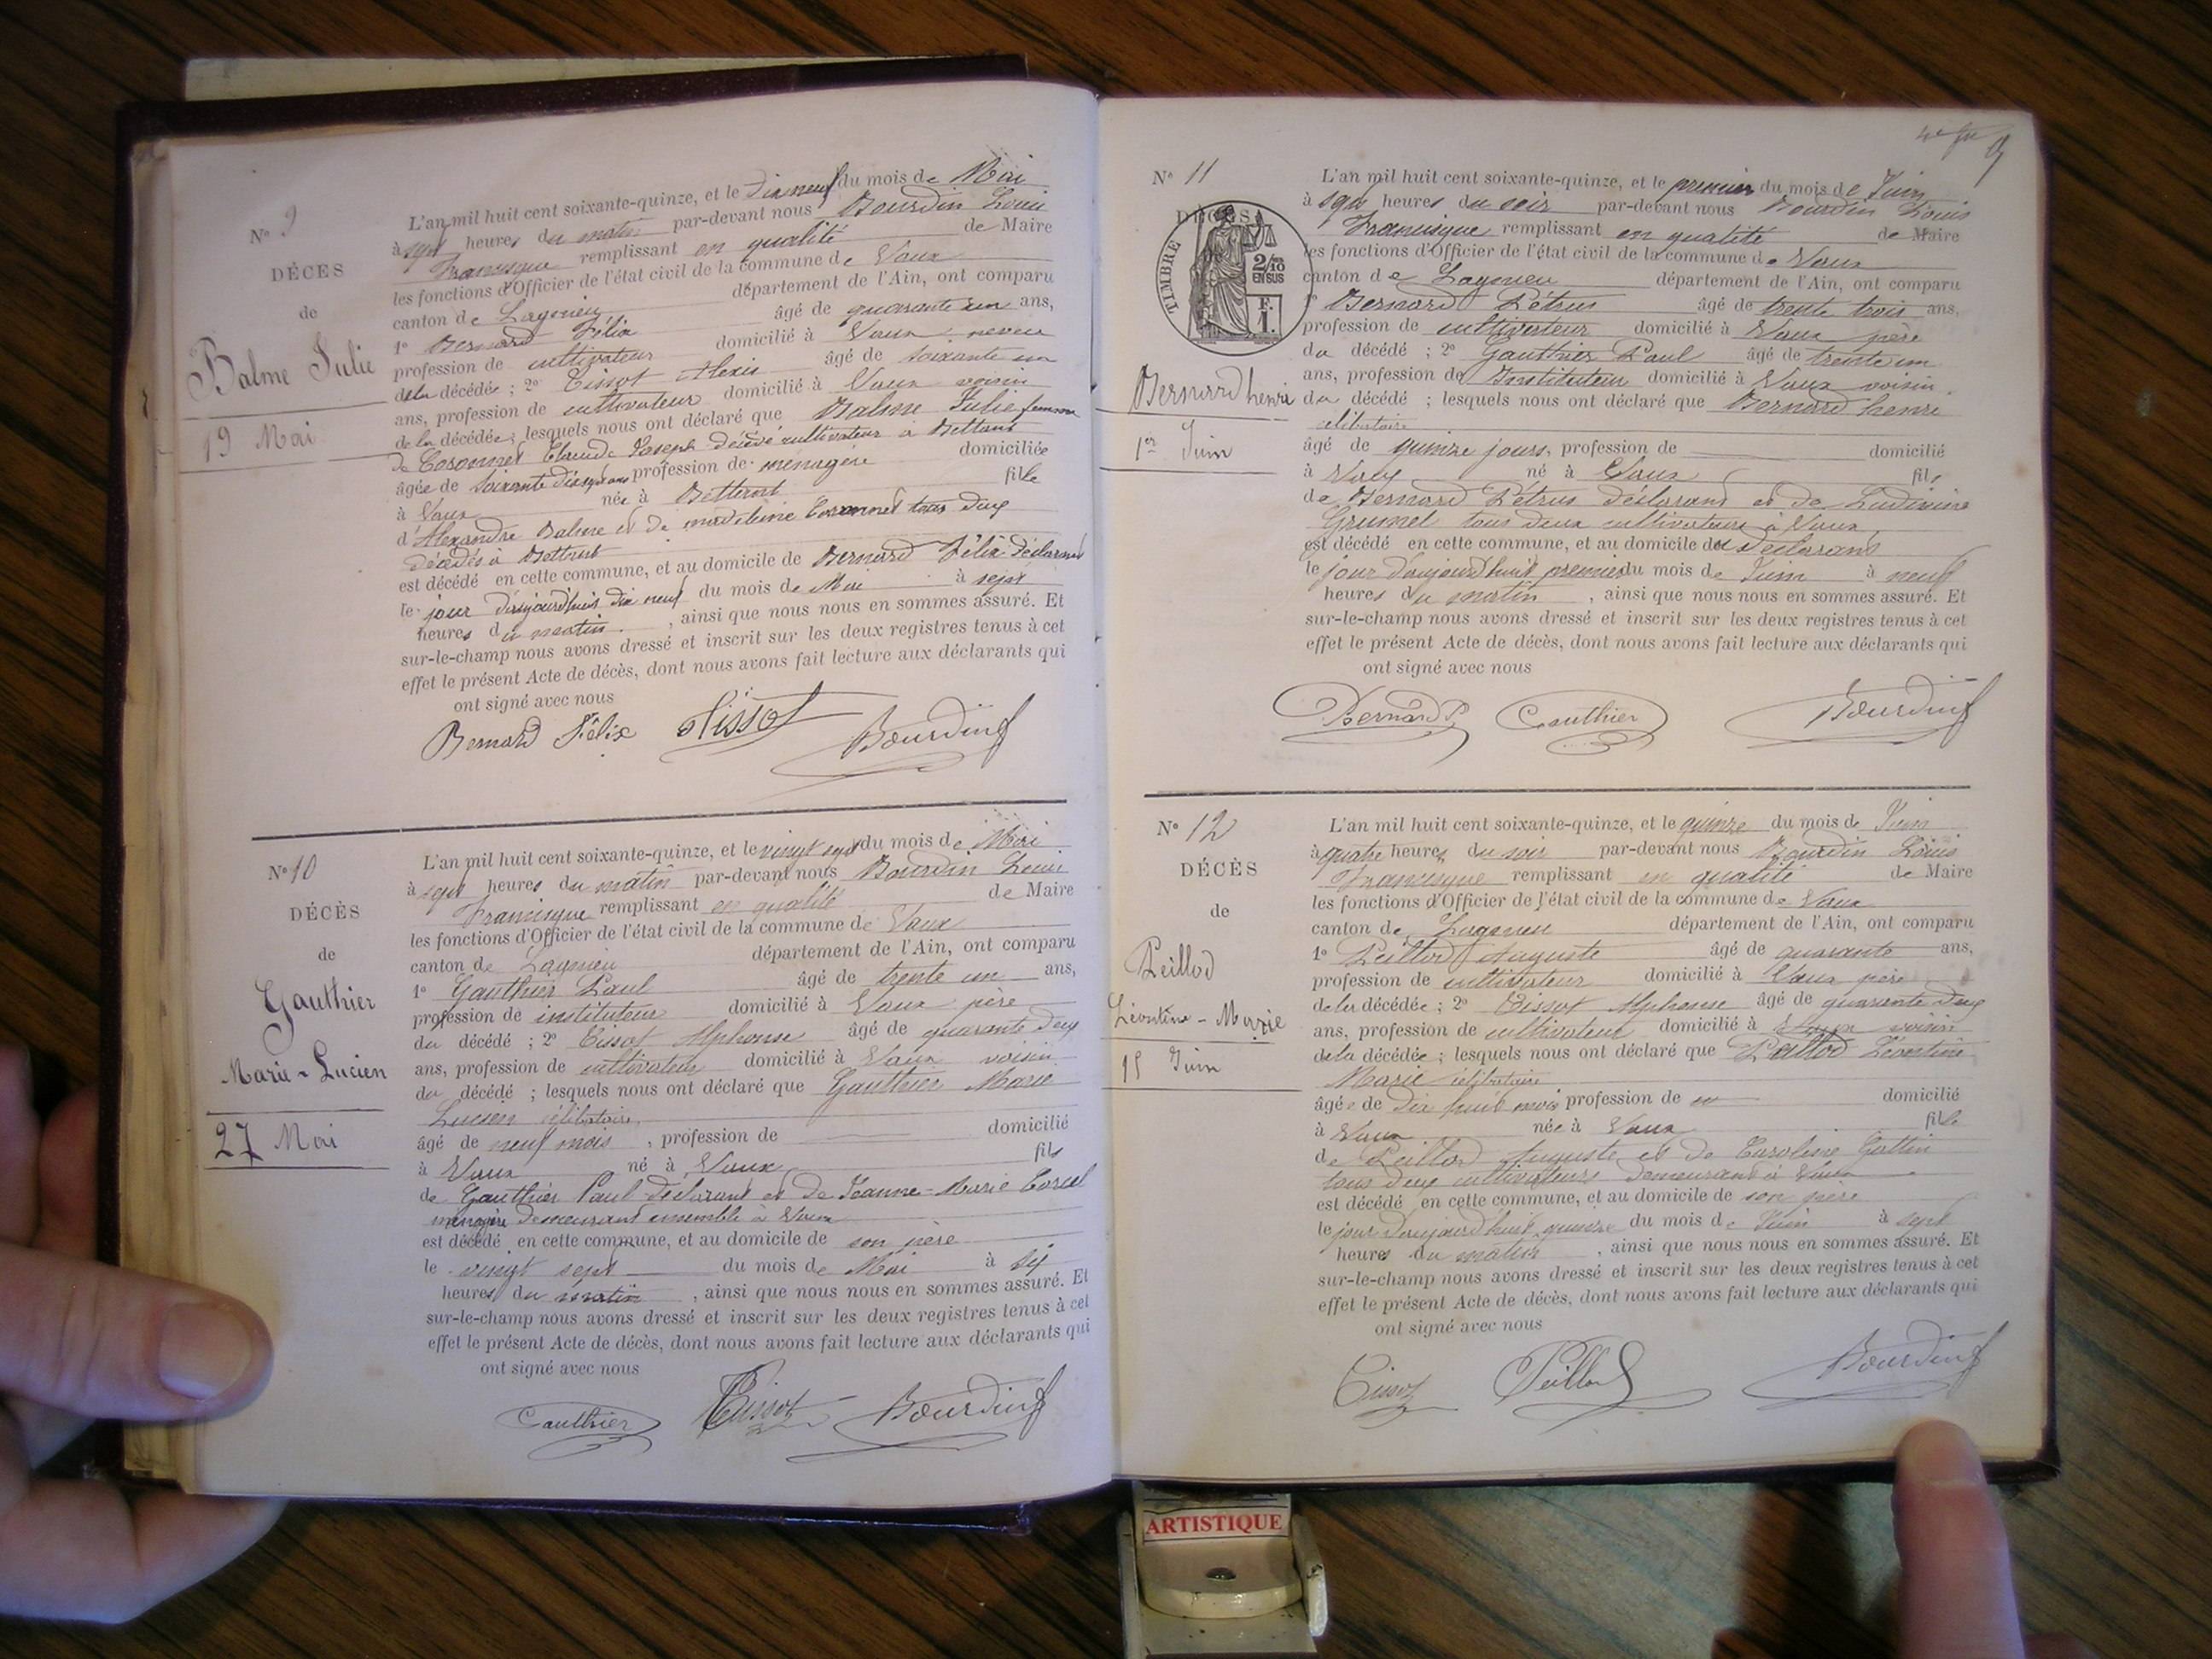 N° 9
DÉCÈS
de
Balme Julie
19 Mai
L'an mil huit cent soixante-quinze, et le dix neuf du mois de Mai
à sept heures du matin par-devant nous Bourdin Louis
Francisque remplissant en qualité de Maire
les fonctions d'Officier de l'état civil de la commune de Vaux
canton de Lagnieu département de l'Ain, ont comparu
1° Bernard Félix âgé de quarante un ans,
profession de cultivateur domicilié à Vaux neveu
de la décédée ; 2° Tissot Alexis âgé de soixante un
ans, profession de cultivateur domicilié à Vaux voisin
de la décédée ; lesquels nous ont déclaré que Balme Julie femme
de Claude Joseph décédé cultivateur à Bettant
âgée de soixante dix sept ans profession de ménagère domiciliée
à Vaux née à Bettant fille
d'Alexandre Balme et de madeleine tous deux
décédés à Bettant
est décédé en cette commune, et au domicile de Bernard Félix déclarant
le jour d'aujourd'hui dix neuf du mois de Mai à sept
heures du matin , ainsi que nous nous en sommes assuré. Et
sur-le-champ nous avons dressé et inscrit sur les deux registres tenus à cet
effet le présent Acte de décès, dont nous avons fait lecture aux déclarants qui
ont signé avec nous
Bernard Félix Tissot Bourdin f
N° 10
DÉCÈS
de
Gauthier
Marie-Lucien
27 Mai
L'an mil huit cent soixante-quinze, et le vingt sept du mois de Mai
à sept heures du matin par-devant nous Bourdin Louis
Francisque remplissant en qualité de Maire
les fonctions d'Officier de l'état civil de la commune de Vaux
canton de Lagnieu département de l'Ain, ont comparu
1° Gauthier Paul âgé de trente un ans,
profession de instituteur domicilié à Vaux père
du décédé ; 2° Tissot Alphonse âgé de quarante deux
ans, profession de cultivateur domicilié à Vaux voisin
du décédé ; lesquels nous ont déclaré que Gauthier Marie
Lucien célibataire
âgé de neuf mois , profession de domicilié
à Vaux né à Vaux fils
de Gauthier Paul déclarant et de Jeanne-Marie
ménagère demeurant ensemble à Vaux
est décédé en cette commune, et au domicile de son père
le vingt sept du mois de Mai à six
heures du matin , ainsi que nous nous en sommes assuré. Et
sur-le-champ nous avons dressé et inscrit sur les deux registres tenus à cet
effet le présent Acte de décès, dont nous avons fait lecture aux déclarants qui
ont signé avec nous
Gauthier Tissot Bourdin f
N° 11
DÉCÈS
TIMBRE
2/10
EN SUS
F.
1.
Bernard henri
1er Juin
L'an mil huit cent soixante-quinze, et le premier du mois de Juin
à sept heures du soir par-devant nous Bourdin Louis
Francisque remplissant en qualité de Maire
les fonctions d'Officier de l'état civil de la commune de Vaux
canton de Lagnieu département de l'Ain, ont comparu
1° Bernard Pétrus âgé de trente trois ans,
profession de cultivateur domicilié à Vaux père
du décédé ; 2° Gauthier Paul âgé de trente un
ans, profession de Instituteur domicilié à Vaux voisin
du décédé ; lesquels nous ont déclaré que Bernard henri
célibataire
âgé de quinze jours, profession de domicilié
à Vaux né à Vaux fils
de Bernard Pétrus déclarant et de Ludivine
Grumel tous deux cultivateurs à Vaux
est décédé en cette commune, et au domicile du déclarant
le jour d'aujourd'huit premier du mois de Juin à neuf
heures du matin , ainsi que nous nous en sommes assuré. Et
sur-le-champ nous avons dressé et inscrit sur les deux registres tenus à cet
effet le présent Acte de décès, dont nous avons fait lecture aux déclarants qui
ont signé avec nous
Bernard P. Gauthier Bourdin f
N° 12
DÉCÈS
de
Peillod
Léontine-Marie
15 Juin
L'an mil huit cent soixante-quinze, et le quinze du mois de Juin
à quatre heures du soir par-devant nous Bourdin Louis
Francisque remplissant en qualité de Maire
les fonctions d'Officier de l'état civil de la commune de Vaux
canton de Lagnieu département de l'Ain, ont comparu
1° Peillod Auguste âgé de quarante ans,
profession de cultivateur domicilié à Vaux père
de la décédée ; 2° Tissot Alphonse âgé de quarante deux
ans, profession de cultivateur domicilié à Vaux voisin
de la décédée ; lesquels nous ont déclaré que Peillod Léontine
Marie célibataire
âgée de dix huit mois profession de domicilié
à Vaux née à Vaux fille
de Peillod Auguste et de Caroline Gottin
tous deux cultivateurs demeurant à Vaux
est décédé en cette commune, et au domicile de son père
le jour d'aujourd'huit quinze du mois de Juin à sept
heures du matin , ainsi que nous nous en sommes assuré. Et
sur-le-champ nous avons dressé et inscrit sur les deux registres tenus à cet
effet le présent Acte de décès, dont nous avons fait lecture aux déclarants qui
ont signé avec nous
Tissot Peillod Bourdin f
ARTISTIQUE